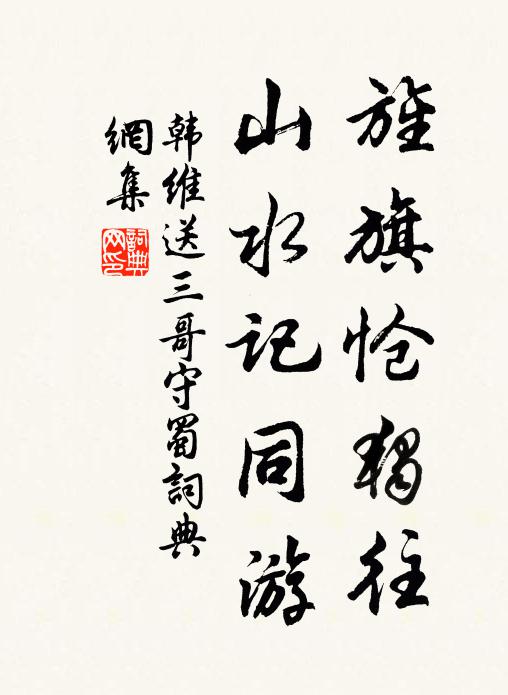 旌旗怆獨往
山水记同游
韩维送三哥守蜀詞典
網集
詞典
网印